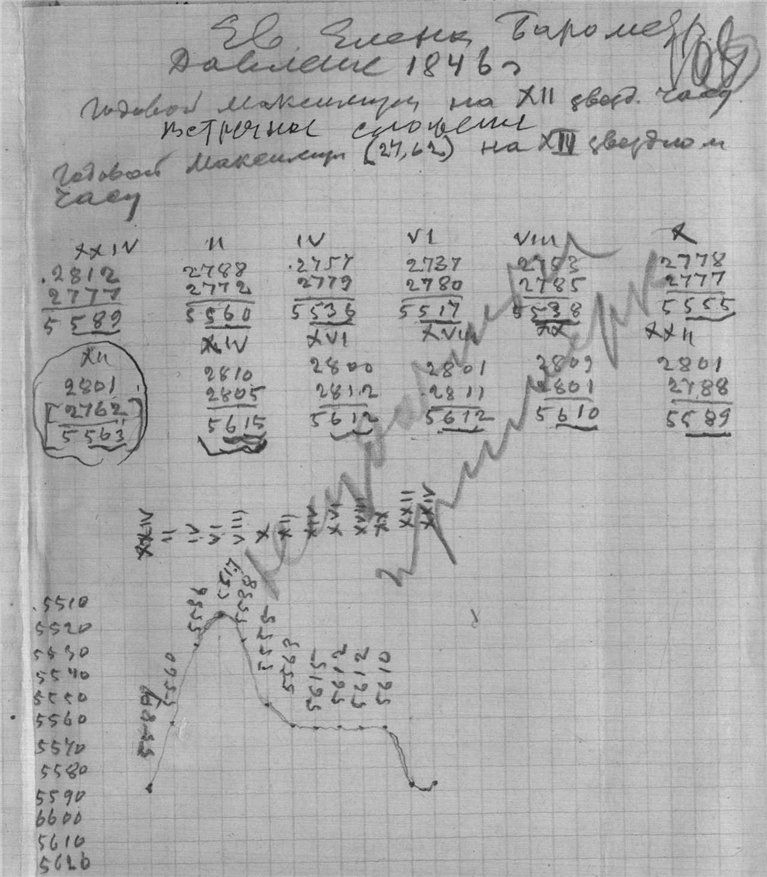 Ев Елена Баромет.
Давление 1846 г
годовой максимум на XII звезд. часу
встречное сложение
годовой максимум (27,62) на XII звездном
часу
XXIV II IV VI VIII X
.2812 2788 .2757 2737 2753 2778
2777 2772 2779 2780 2785 2777
5589 5560 5536 5517 5538 5555
XII XIV XVI XVIII XX XXII
2801 2810 2800 2801 2809 2801
[2762] 2805 2812 2811 2801 2788
5563 5615 5612 5612 5610 5589
XXIV II IV VI VIII X XII XIV XVI XVIII XX XXII XXIV
5589 5560 5536 5517 5538 5555 5563 5615 5612 5612 5610
.5510
5520
5530
5540
5550
5560
5570
5580
5590
6600
5610
5620